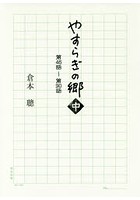 やすらぎの郷 中
第46話―第90話
倉本 聰